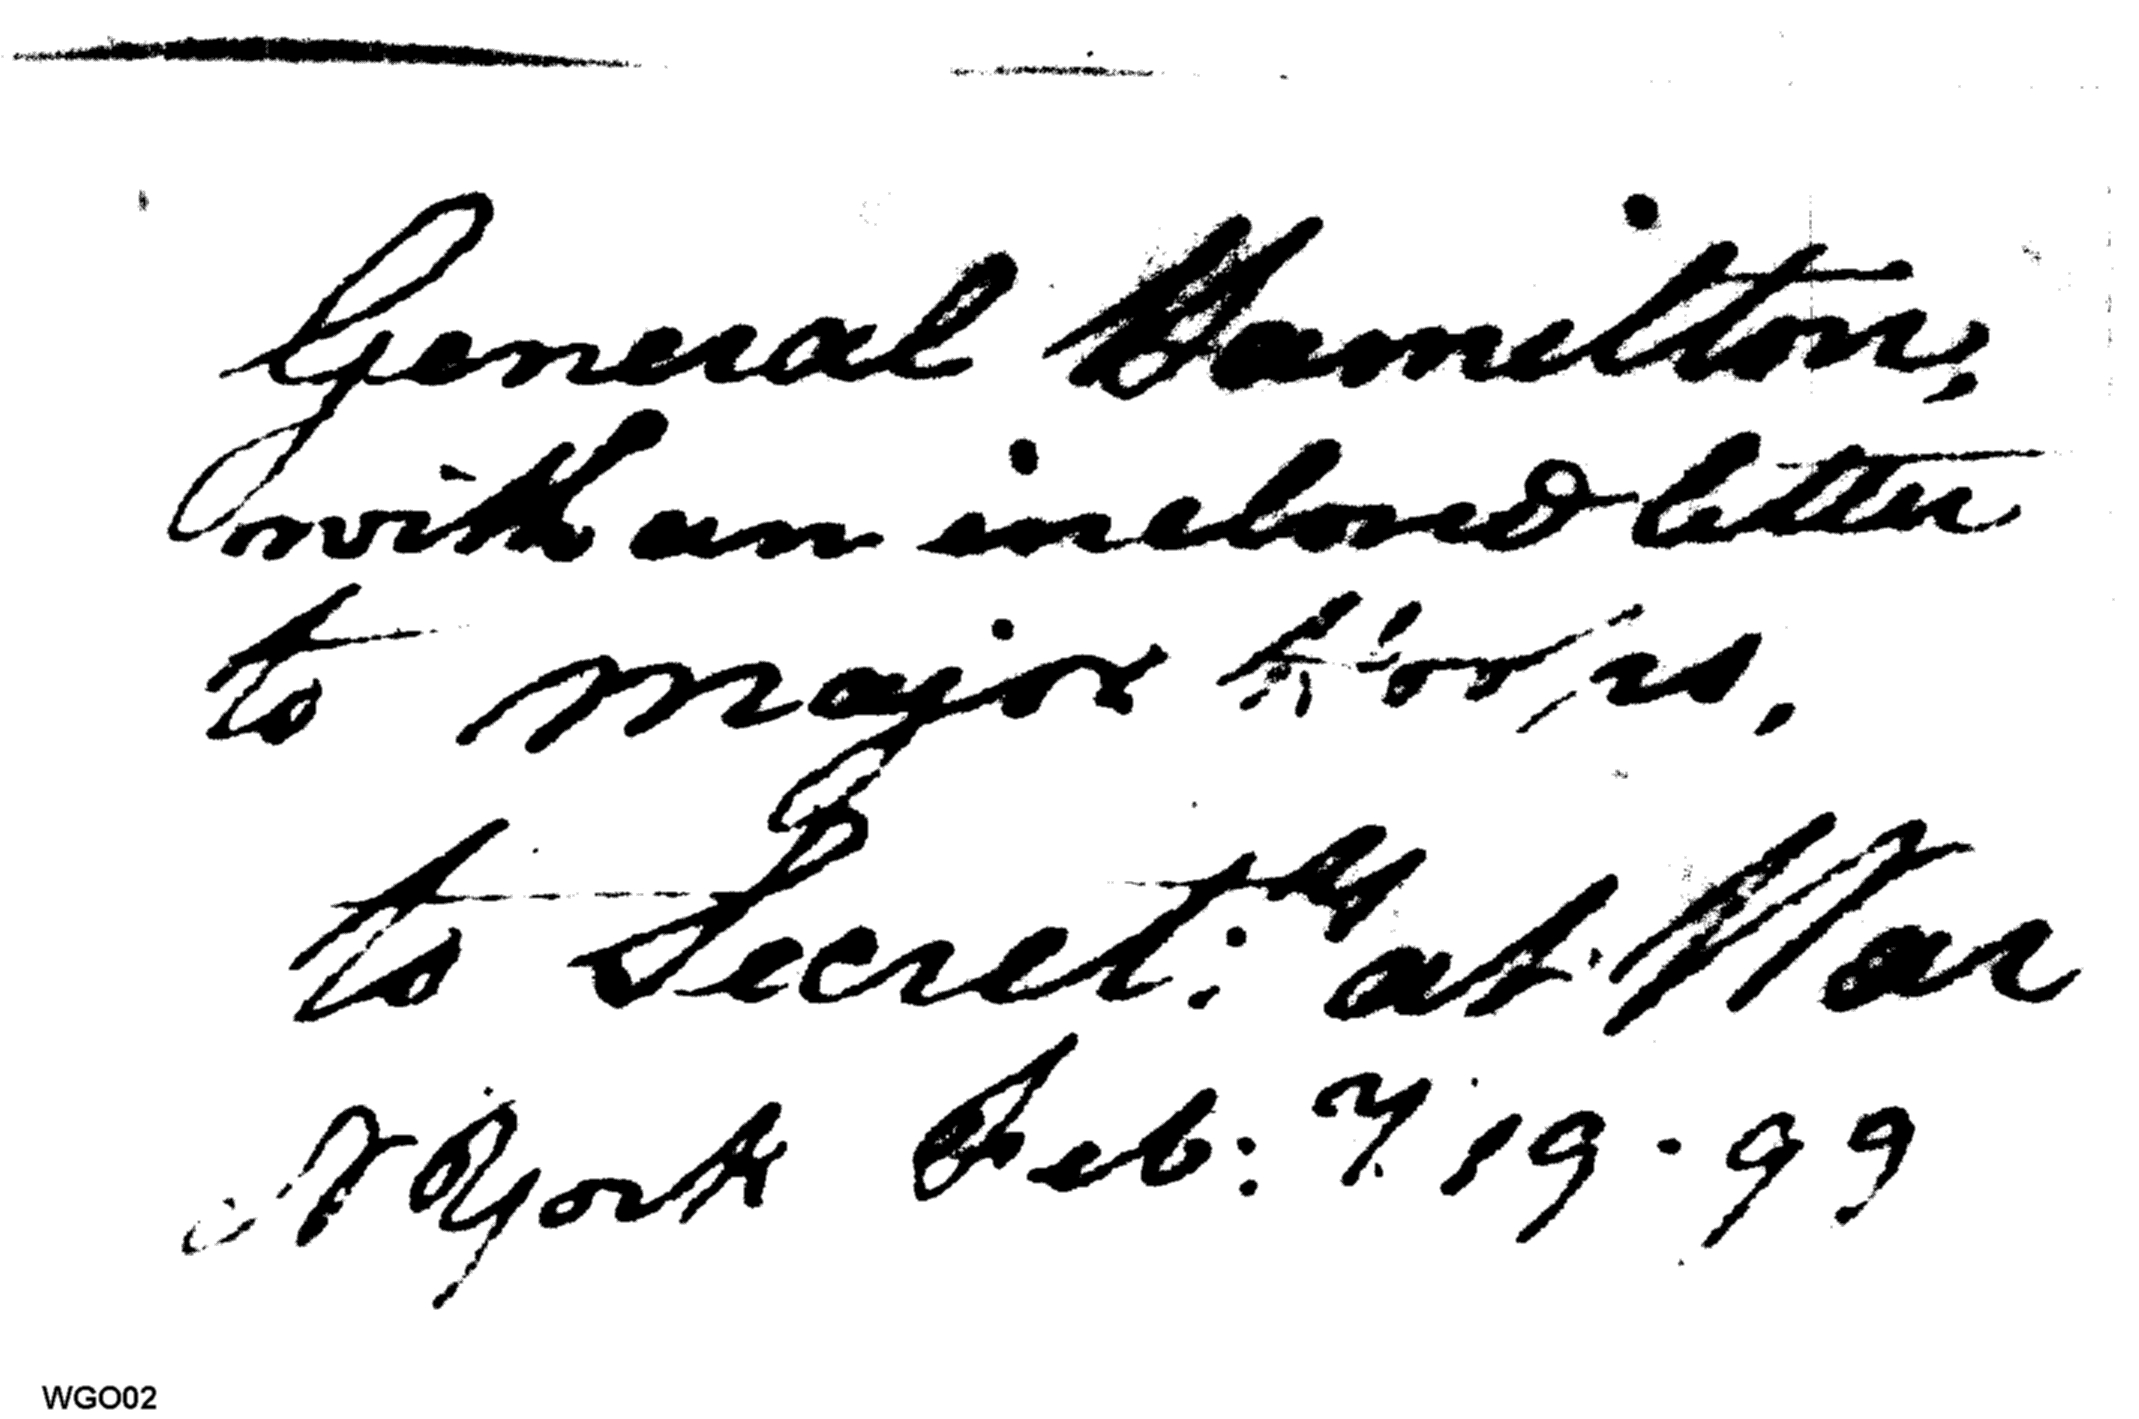 General Hamilton,
with an inclosed letter
to Major Hoops,
to Secret:ry at War
N York Feb:ry 19 - 99
WGO02